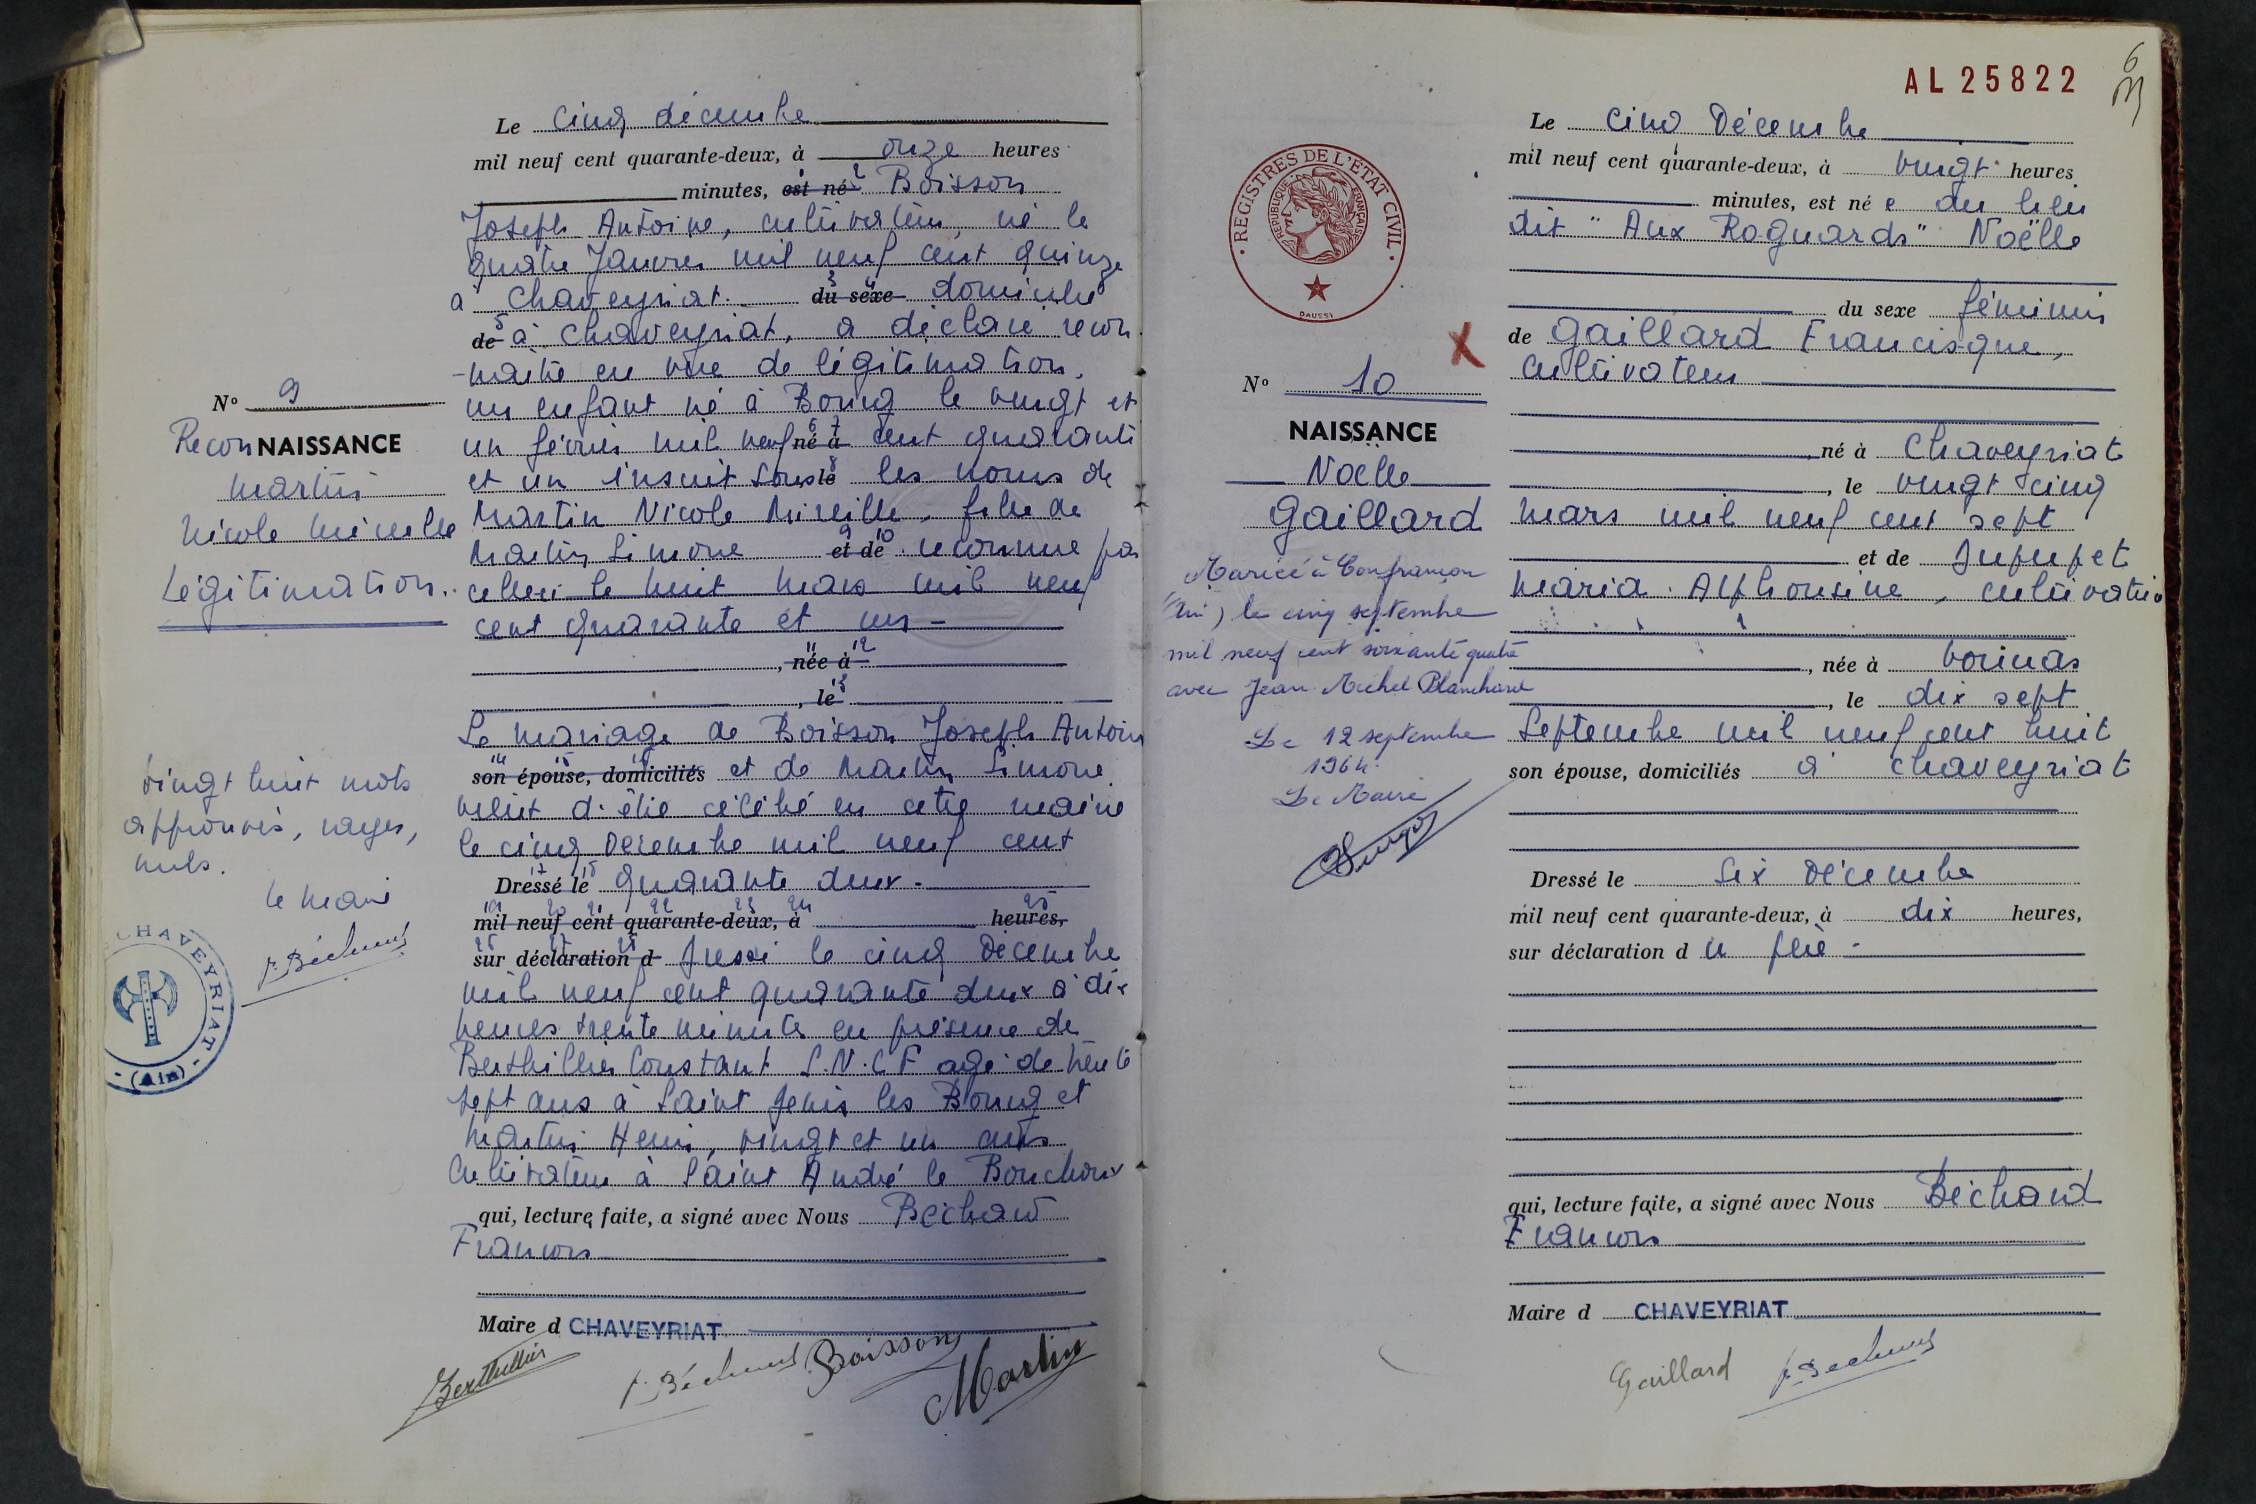 Le cinq décembre
mil neuf cent quarante-deux, à onze heures
minutes, est né Boisson
Joseph Antoine, cultivateur, né le
quatre Janvier mil neuf cent quinze
à Chaveyriat. du sexe domicilié
de à Chaveyriat, a déclaré recon
-naître en vue de légitimation,
un enfant né à Bourg le vingt et
un février mil neuf né à cent quarante
et un inscrit sous le les noms de
Martin Nicole Mireille, fille de
Martin Simone et de reconnue par
celle-ci le huit mars mil neuf
cent quarante et un -
, née à
, le
Le mariage de Boisson Joseph Antoine
son épouse, domiciliés et de Martin Simone
vient d'être célébré en cette mairie
le cinq Décembre mil neuf cent
Dressé le quarante deux.
mil neuf cent quarante-deux, à heures,
sur déclaration d Dressé le cinq Décembre
mil neuf cent quarante deux à dix
heures trente minutes en présence de
Berthillier Constant S.N.C.F agé de trente
sept ans à Saint Genis les Bourg et
Martin Henri, vingt et un ans
Cultivateur à Saint André le Bouchoux
qui, lecture faite, a signé avec Nous Béchard
Francois
Maire d CHAVEYRIAT
Berthillier F. Béchard Boisson Martin
N° 9
ReconNAISSANCE
Martin
Nicole Mireille
Légitimation.
Vingt huit mots
approuvés, rayés,
nuls.
Le Maire
F. Béchard
CHAVEYRIAT - (Ain) -
AL 25822
6
REGISTRES DE L'ÉTAT CIVIL
RÉPUBLIQUE FRANÇAISE
DAUSSY
N° 10
NAISSANCE
Noëlle
Gaillard
Mariée à Confrançon
(Ain) le cinq septembre
mil neuf cent soixante quatre
avec Jean Michel Blanchard
Le 12 septembre
1964.
Le Maire
Le cinq Décembre
mil neuf cent quarante-deux, à vingt heures
minutes, est né e au lieu
dit "Aux Roguards" Noëlle
du sexe féminin
de Gaillard Francisque,
cultivateur
, né à Chaveyriat
, le vingt cinq
Mars mil neuf cent sept
et de Jupupet
Maria Alphonsine, cultivatrice
, née à Vonnas
, le dix sept
Septembre mil neuf cent huit
son épouse, domiciliés à Chaveyriat
Dressé le Six Décembre
mil neuf cent quarante-deux, à dix heures,
sur déclaration d u père -
qui, lecture faite, a signé avec Nous Béchard
Francois
Maire d CHAVEYRIAT
Gaillard F. Béchard